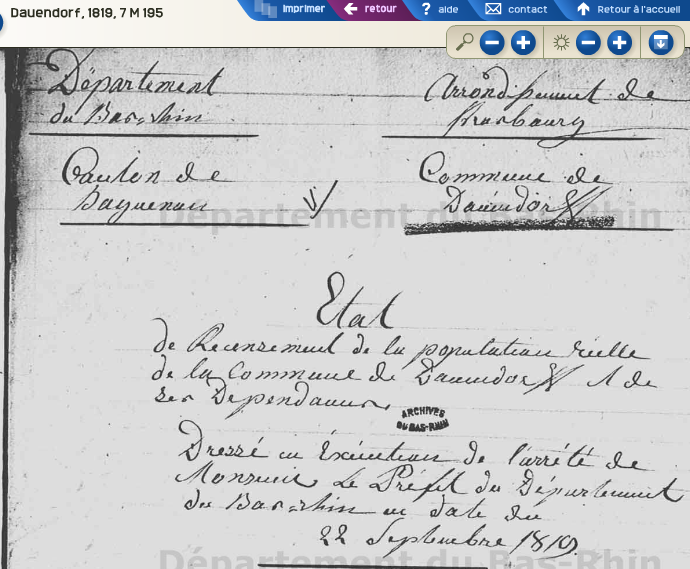 Dauendorf, 1819, 7 M 195
imprimer
retour
? aide
contact
Retour à l'accueil
Département
du Bas-rhin
Arrondissement de
Strasbourg
Canton de
haguenau
Commune de
Dauendorff
Département du Bas-Rhin
Etat
de Recensement de la population réelle
de la Commune de Dauendorff & de
ses Dependances
ARCHIVES
DU BAS-RHIN
Dressé en Exécution de l'arrêté de
Monsieur Le Préfet du Département
du Bas-rhin en date du
22 Septembre 1819.
Département du Bas-Rhin